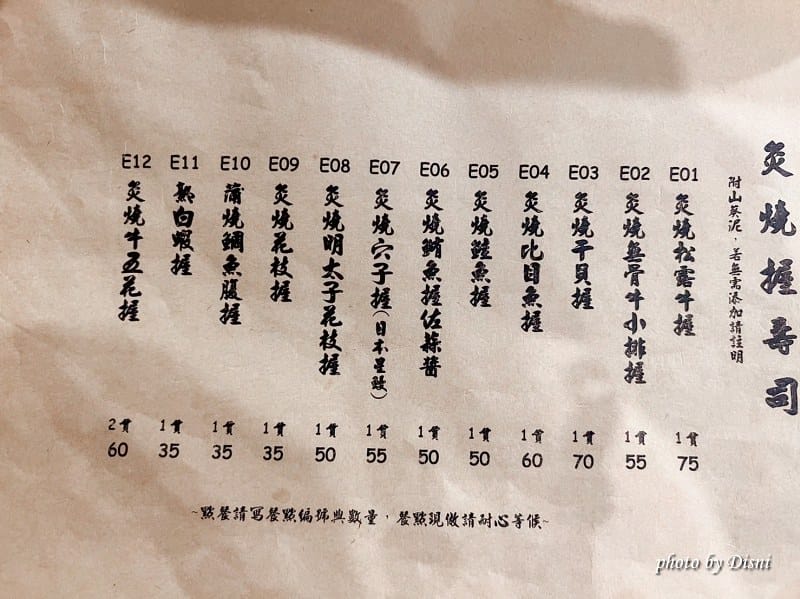 炙燒握壽司
附山葵泥，若無需添加請註明
E01 炙燒松露牛握 1貫 75
E02 炙燒無骨牛小排握 1貫 55
E03 炙燒干貝握 1貫 70
E04 炙燒比目魚握 1貫 60
E05 炙燒鮭魚握 1貫 50
E06 炙燒鮪魚握佐蒜醬 1貫 50
E07 炙燒穴子握(日本星鰻) 1貫 55
E08 炙燒明太子花枝握 1貫 50
E09 炙燒花枝握 1貫 35
E10 蒲燒鯛魚腹握 1貫 35
E11 熟白蝦握 1貫 35
E12 炙燒牛五花握 2貫 60
~點餐請寫餐點編號與數量，餐點現做請耐心等候~
photo by Disni